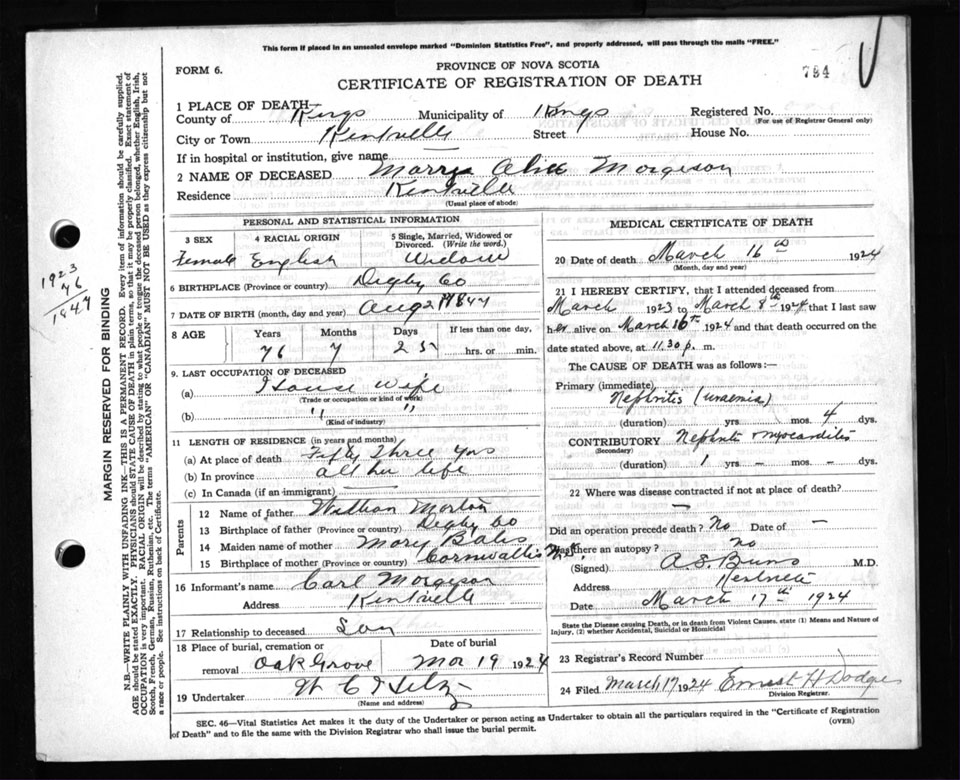 This form if placed in an unsealed envelope marked "Dominion Statistics Free", and properly addressed, will pass through the mails "FREE."
FORM 6.
PROVINCE OF NOVA SCOTIA
794
CERTIFICATE OF REGISTRATION OF DEATH
1 PLACE OF DEATH—
County of Kings Municipality of Kings Registered No.
(For use of Registrar General only)
City or Town Kentville Street House No.
If in hospital or institution, give name
2 NAME OF DECEASED Alice Morgeson
Residence Kentville
(Usual place of abode)
PERSONAL AND STATISTICAL INFORMATION
3 SEX 4 RACIAL ORIGIN 5 Single, Married, Widowed or Divorced. (Write the word.)
Female English Widow
6 BIRTHPLACE (Province or country) Digby Co
7 DATE OF BIRTH (month, day and year) Aug
8 AGE Years Months Days If less than one day,
76 7 25 hrs. or min.
9. LAST OCCUPATION OF DECEASED
(a) House Wife
(Trade or occupation or kind of work)
(b) " "
(Kind of industry)
11 LENGTH OF RESIDENCE (in years and months)
(a) At place of death Fifty Three yrs
(b) In province all her life
(c) In Canada (if an immigrant)
Parents
12 Name of father William Morton
13 Birthplace of father (Province or country) Digby Co
14 Maiden name of mother Mary
15 Birthplace of mother (Province or country) Cornwallis NS
16 Informant's name Carl Morgeson
Address Kentville
17 Relationship to deceased Son
18 Place of burial, cremation or removal Date of burial
Oak Grove Mar 19 1924
19 Undertaker
(Name and address)
MEDICAL CERTIFICATE OF DEATH
20 Date of death March 16th 1924
(Month, day and year)
21 I HEREBY CERTIFY, that I attended deceased from
March 1923 to March 8th 1924 that I last saw
her alive on March 16th 1924 and that death occurred on the
date stated above, at 11.30 p. m.
The CAUSE OF DEATH was as follows:—
Primary (immediate)
Nephritis (uraemia)
(duration) yrs – mos. 4 dys.
CONTRIBUTORY Nephritis + myocarditis
(Secondary)
(duration) 1 yrs – mos. – dys.
22 Where was disease contracted if not at place of death?
—
Did an operation precede death? No Date of –
Was there an autopsy? No
(Signed) A. S. Burns M.D.
Address Kentville
Date March 17th 1924
State the Disease causing Death, or in death from Violent Causes, state (1) Means and Nature of Injury, (2) whether Accidental, Suicidal or Homicidal
23 Registrar's Record Number
24 Filed March 17 1924 Ernest H Dodge
Division Registrar.
SEC. 46—Vital Statistics Act makes it the duty of the Undertaker or person acting as Undertaker to obtain all the particulars required in the "Certificate of Registration
of Death" and to file the same with the Division Registrar who shall issue the burial permit.
(OVER)
MARGIN RESERVED FOR BINDING
N.B.—WRITE PLAINLY WITH UNFADING INK—THIS IS A PERMANENT RECORD. Every item of information should be carefully supplied.
AGE should be stated EXACTLY. PHYSICIANS should STATE CAUSE OF DEATH in plain terms, so that it may be properly classified. Exact statement of
OCCUPATION is very important. RACIAL ORIGIN will be described by stating to what people or tongue the deceased person belonged, whether English, Irish,
Scotch, French, German, Russian, Ruthenian, etc. The terms "AMERICAN" or "CANADIAN" MUST NOT BE USED as they express citizenship but not
a race or people. See instructions on back of Certificate.
1923
76
1847